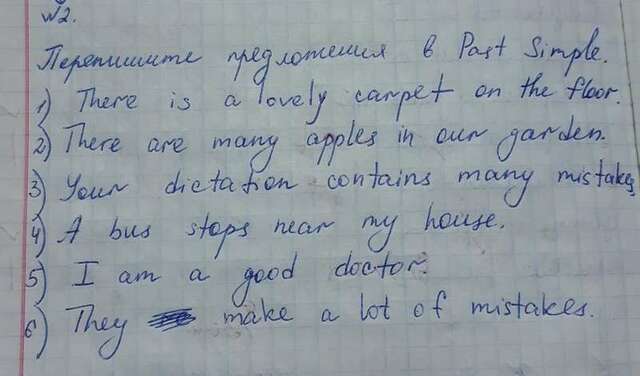 №2.
Перепишите предложения в Past Simple.
1) There is a lovely carpet on the floor.
2) There are many apples in our garden.
3) Your dictation contains many mistakes
4) A bus stops near my house.
5) I am a good doctor.
6) They make a lot of mistakes.